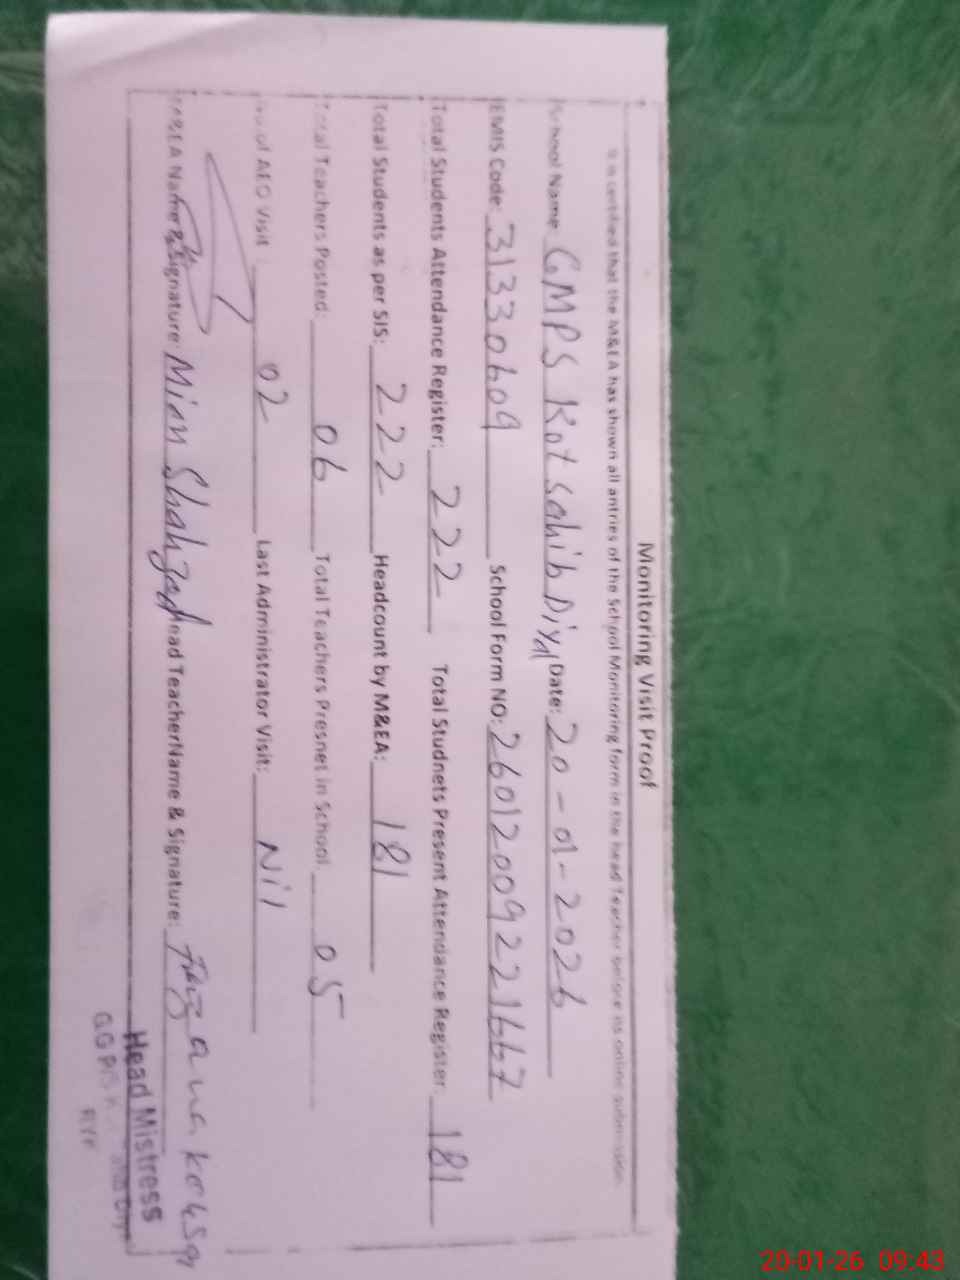 Monitoring Visit Proof
It is certified that the M&EA has shown all antries of the School Monitoring form in the head Teacher before its online submission.
School Name: GMPS Kot Sahib Diyal Date: 20-01-2026
EMIS Code: 31330609 School Form NO: 26012009221667
Total Students Attendance Register: 222 Total Studnets Present Attendance Register: 181
Total Students as per SIS: 222 Headcount by M&EA: 181
Total Teachers Posted: 06 Total Teachers Presnet in School: 05
No of AEO Visit 02 Last Administrator Visit: Nil
M&EA Name & Signature: Mian Shahzad Head TeacherName & Signature:
Head Mistress
20-01-26 09:43